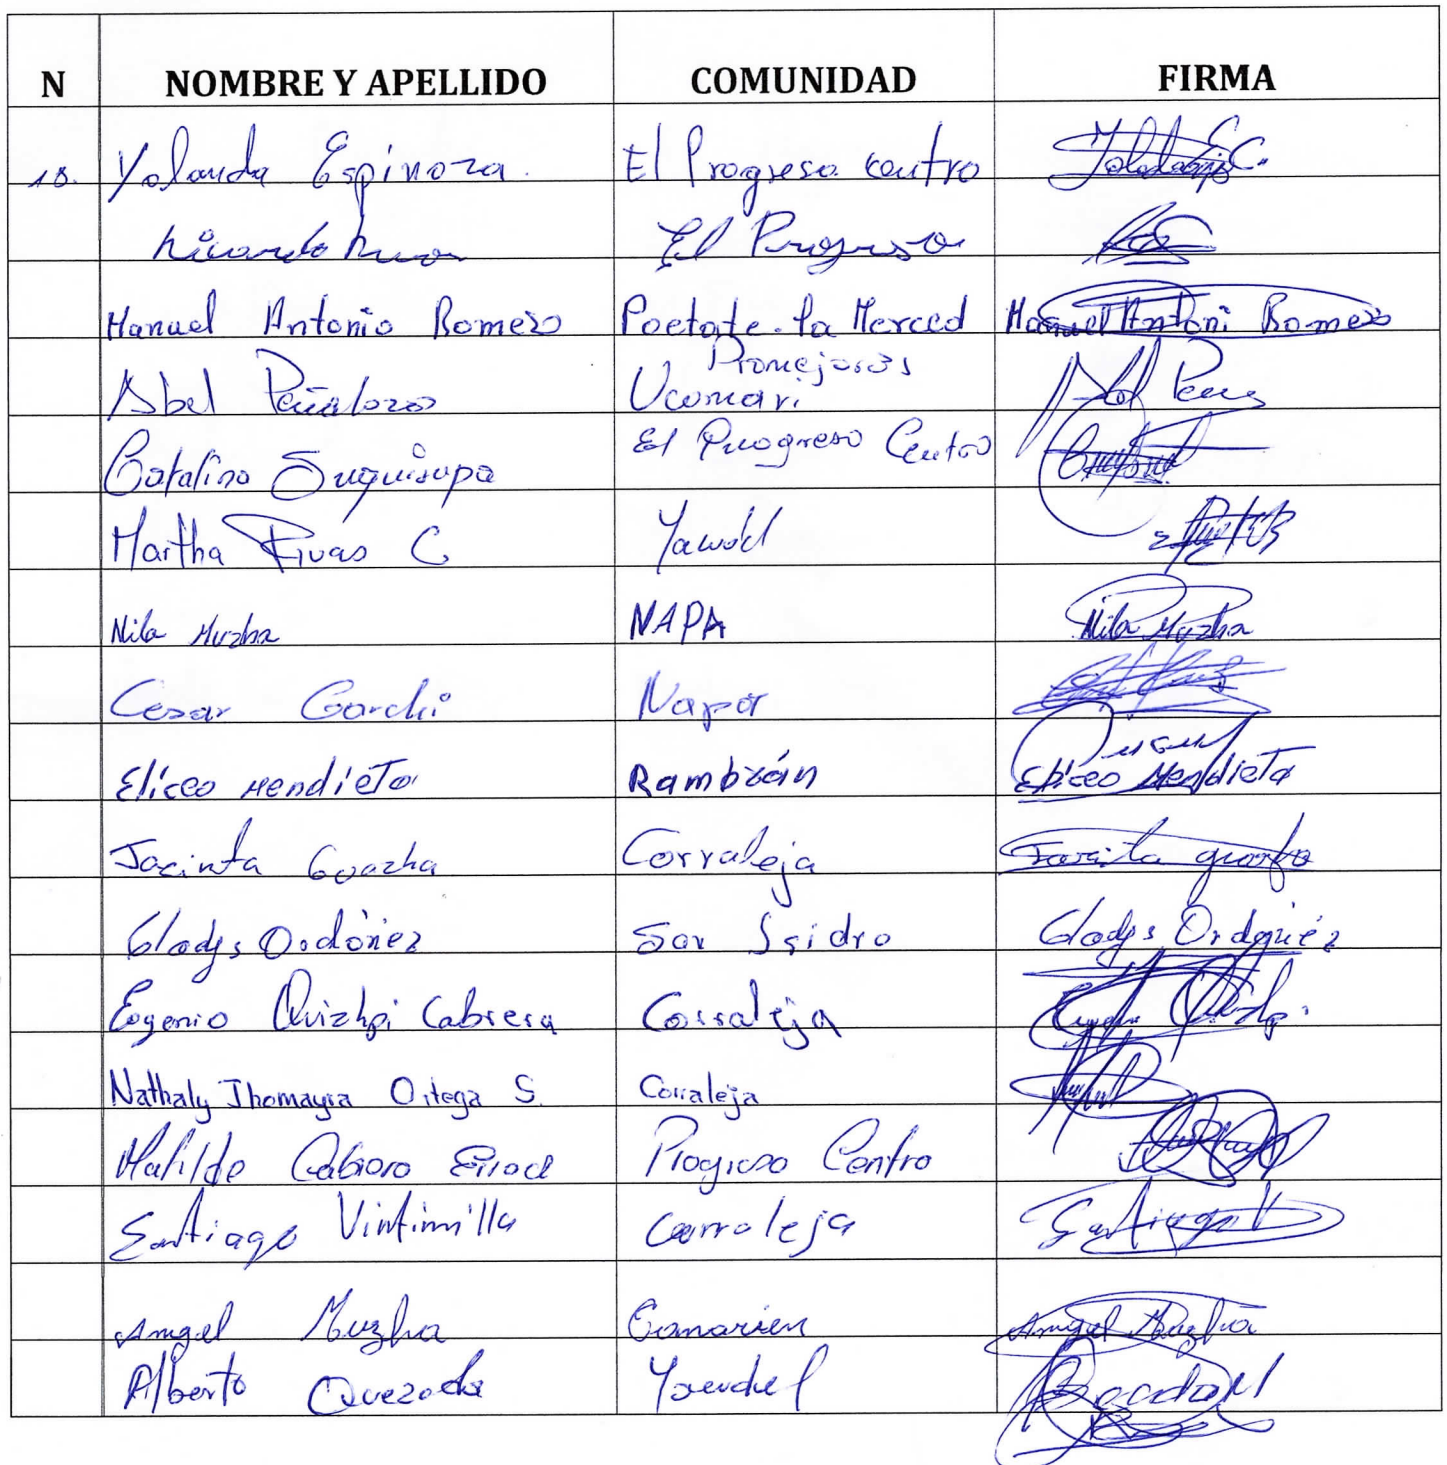 N NOMBRE Y APELLIDO COMUNIDAD FIRMA
18. Yolanda Espinoza. El Progreso centro
Ricardo El Progreso
Manuel Antonio Romero Poetate - La Merced Manuel Antoni Romero
Promejoras
Abel Peñaloza Ucumari
Catalina Suquisupa El Progreso Centro
Martha Rivas C
Nila Muzha NAPA Nila Muzha
Cesar Gorchi Napa
Eliceo Mendieta Rambrán Eliceo Mendieta
Jacinta Guazha Corraleja
Gladys Ordóñez San Isidro Gladys Ordoñez
Eogenio Quizhpi Cabrera Corraleja
Nathaly Jhomayra Ortega S. Corraleja
Matilde Cabrera Progreso Centro
Santiago Vintimilla Corraleja Santiago V
Angel Muzha Angel Muzha
Alberto Quezada